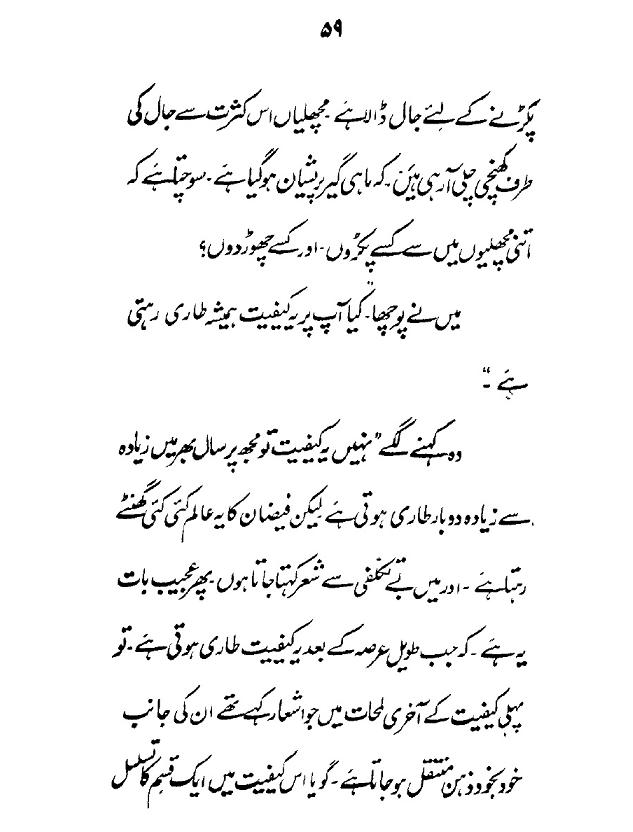 ۵۹
پکڑنے کے لئے جال ڈالا ہے ۔ مچھلیاں اس کثرت سے جال کی
طرف کھنچی چلی آ رہی ہیں ۔ کہ ماہی گیر پریشان ہو گیا ہے ۔ سوچتا ہے کہ
اتنی مچھلیوں میں سے کسے پکڑوں ۔ اور کسے چھوڑ دوں ؟
میں نے پوچھا ۔ کیا آپ پر یہ کیفیت ہمیشہ طاری رہتی
ہے ۔"
وہ کہنے لگے " نہیں یہ کیفیت تو مجھ پر سال بھر میں زیادہ
سے زیادہ دو بار طاری ہوتی ہے لیکن فیضان کا یہ عالم کئی کئی گھنٹے
رہتا ہے ۔ اور میں بے تکلفی سے شعر کہتا جاتا ہوں ۔ پھر عجیب بات
یہ ہے ۔ کہ جب طویل عرصہ کے بعد یہ کیفیت طاری ہوتی ہے ۔ تو
پہلی کیفیت کے آخری لمحات میں جو اشعار کہے تھے ان کی جانب
خود بخود ذہن منتقل ہو جاتا ہے ۔ گویا اس کیفیت میں ایک قسم کا تسلسل